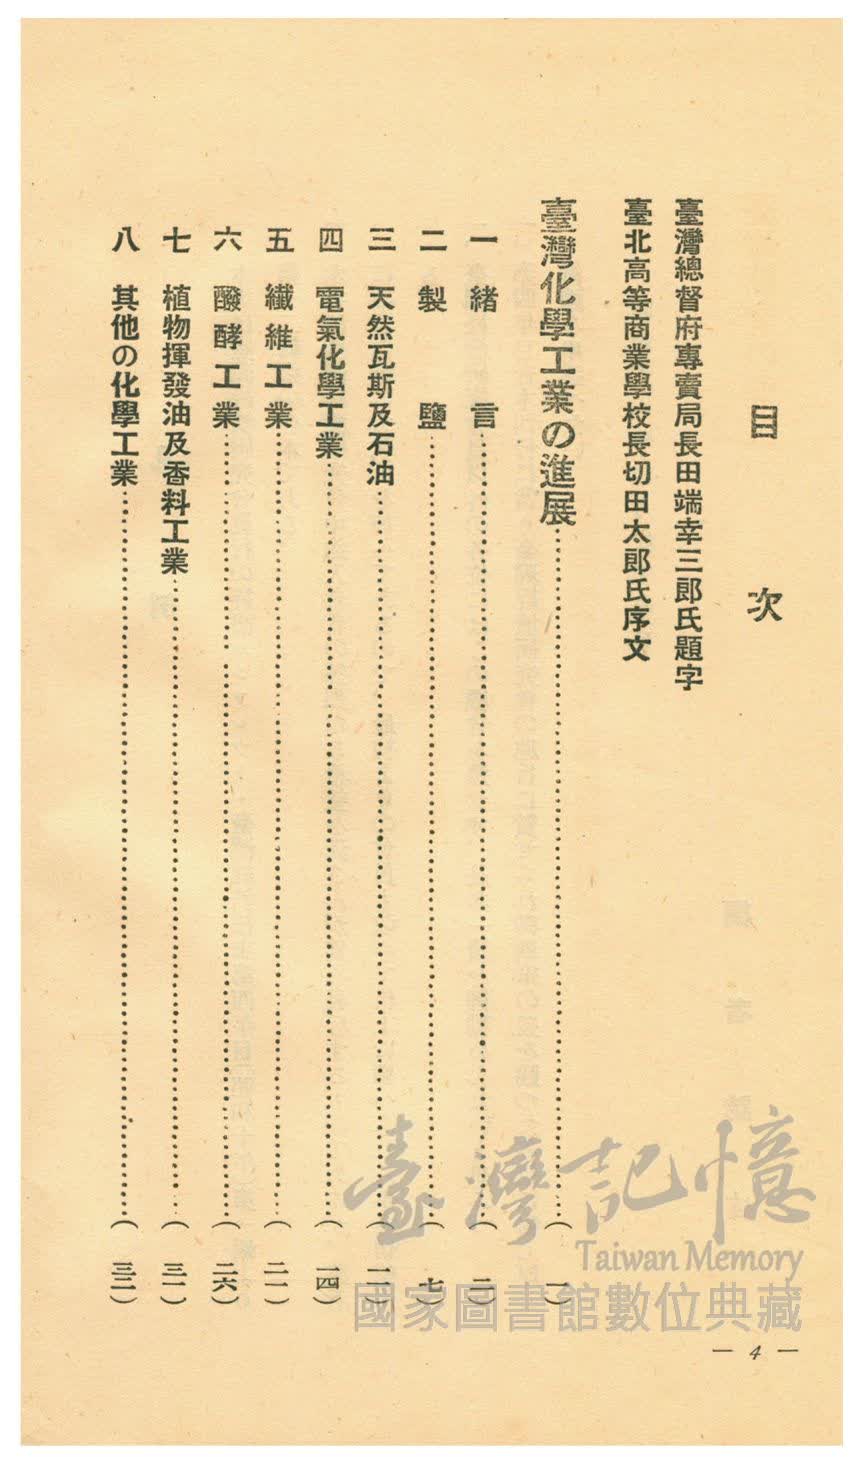 目次
臺灣總督府專賣局長田端幸三郎氏題字
臺北高等商業學校長切田太郎氏序文
臺灣化學工業の進展……………………(一)
一 緒言……………………(二)
二 製鹽……………………(七)
三 天然瓦斯及石油……………………
四 電氣化學工業……………………(一四)
五 纖維工業……………………(二一)
六 醱酵工業……………………(二六)
七 植物揮發油及香料工業……………………(三一)
八 其他の化學工業……………………(三二)
臺灣記憶
Taiwan Memory
國家圖書館數位典藏
— 4 —